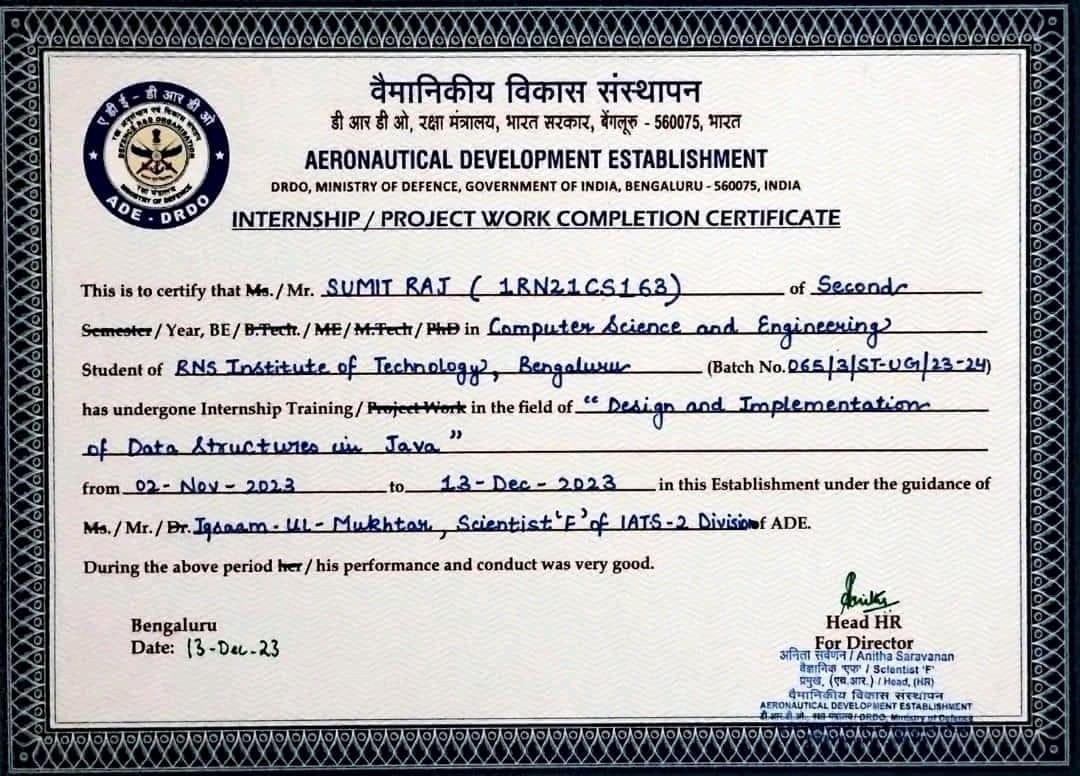 ए डी ई - डी आर डी ओ
DEFENCE R&D ORGANISATION
रक्षा मंत्रालय
MINISTRY OF DEFENCE
ADE - DRDO
वैमानिकीय विकास संस्थापन
डी आर डी ओ, रक्षा मंत्रालय, भारत सरकार, बेंगलूरु - 560075, भारत
AERONAUTICAL DEVELOPMENT ESTABLISHMENT
DRDO, MINISTRY OF DEFENCE, GOVERNMENT OF INDIA, BENGALURU - 560075, INDIA
INTERNSHIP / PROJECT WORK COMPLETION CERTIFICATE
This is to certify that Ms. / Mr. SUMIT RAJ ( 1RN21CS163) of Second
Semester / Year, BE / B.Tech. / ME / M.Tech / PhD in Computer Science and Engineering
Student of RNS Institute of Technology, Bengaluru (Batch No. 065/3/ST-UG/23-24)
has undergone Internship Training / Project Work in the field of “ Design and Implementation
of Data Structures in Java ”
from 02 - Nov - 2023 to 13 - Dec - 2023 in this Establishment under the guidance of
Ms. / Mr. / Dr. Iqsaam - Ul - Mukhtar, Scientist ‘F’ of IATS-2 Division of ADE.
During the above period her / his performance and conduct was very good.
Bengaluru
Date: 13-Dec-23
Head HR
For Director
अनिता सर्वणन / Anitha Saravanan
वैज्ञानिक 'एफ' / Scientist 'F'
प्रमुख, (एच.आर.) / Head, (HR)
वैमानिकीय विकास संस्थापन
AERONAUTICAL DEVELOPMENT ESTABLISHMENT
डी.आर.डी.ओ., रक्षा मंत्रालय / DRDO, Ministry of Defence